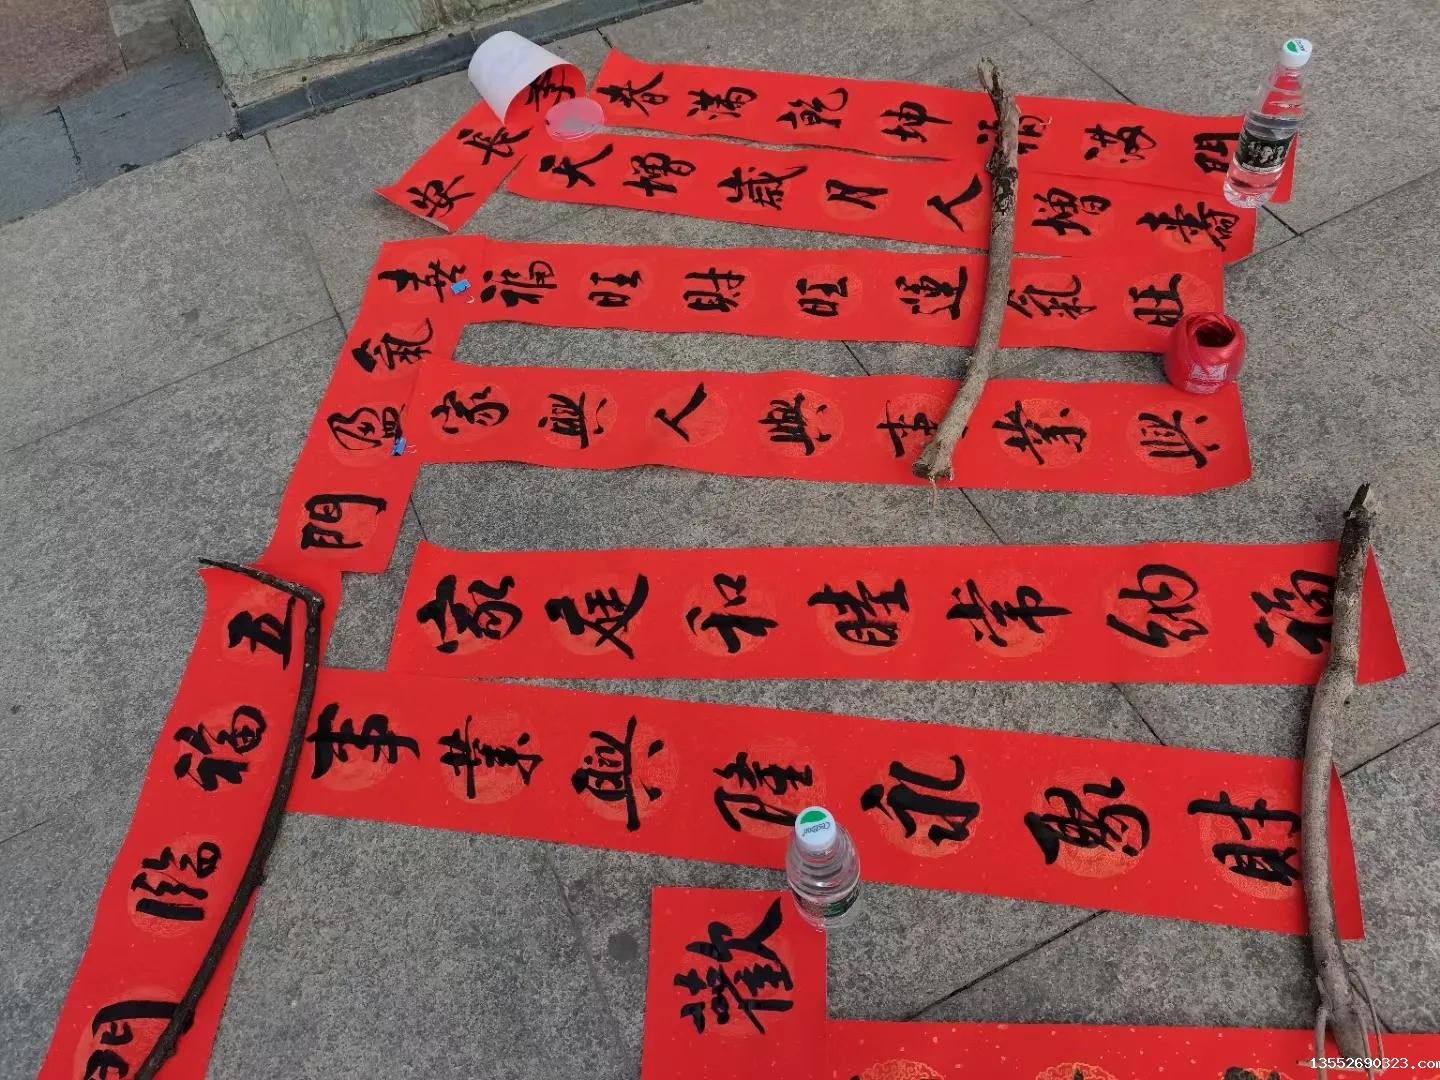 季長安
春满乾坤福满門
天增歲月人增壽
喜氣盈門
福旺財旺運氣旺
家興人興事業興
五福臨門
家庭和睦常納福
事業興隆永聚財
歡
Cestbon
Cestbon
13552690323.com